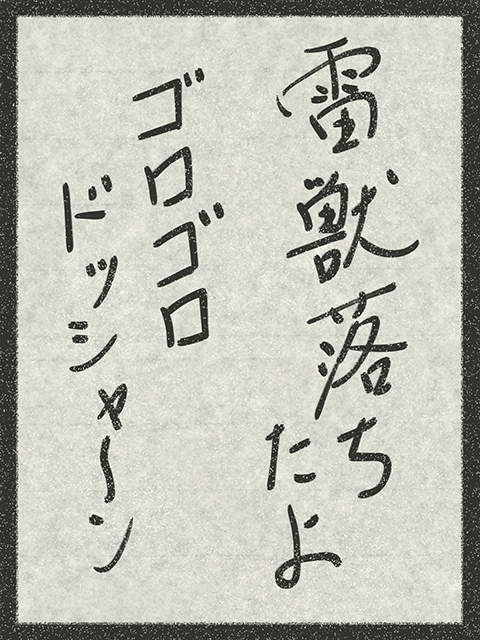 雷獣落ち
たよ
ゴロゴロ
ドッシャ〜ン